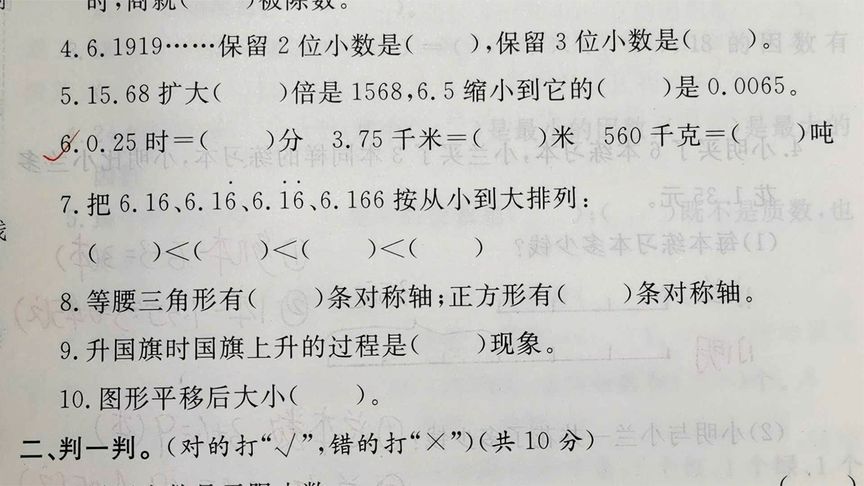 时,商就(　　)被除数。
4.6.1919……保留2位小数是(　　),保留3位小数是(　　)。
5.15.68扩大(　　)倍是1568,6.5缩小到它的(　　)是0.0065。
6.0.25时=(　　)分　3.75千米=(　　)米　560千克=(　　)吨
7.把6.16、6.16̇、6.1̇6̇、6.166按从小到大排列：
(　　)<(　　)<(　　)<(　　)
8.等腰三角形有(　　)条对称轴;正方形有(　　)条对称轴。
9.升国旗时国旗上升的过程是(　　)现象。
10.图形平移后大小(　　)。
二、判一判。(对的打“√”,错的打“×”)(共10分)